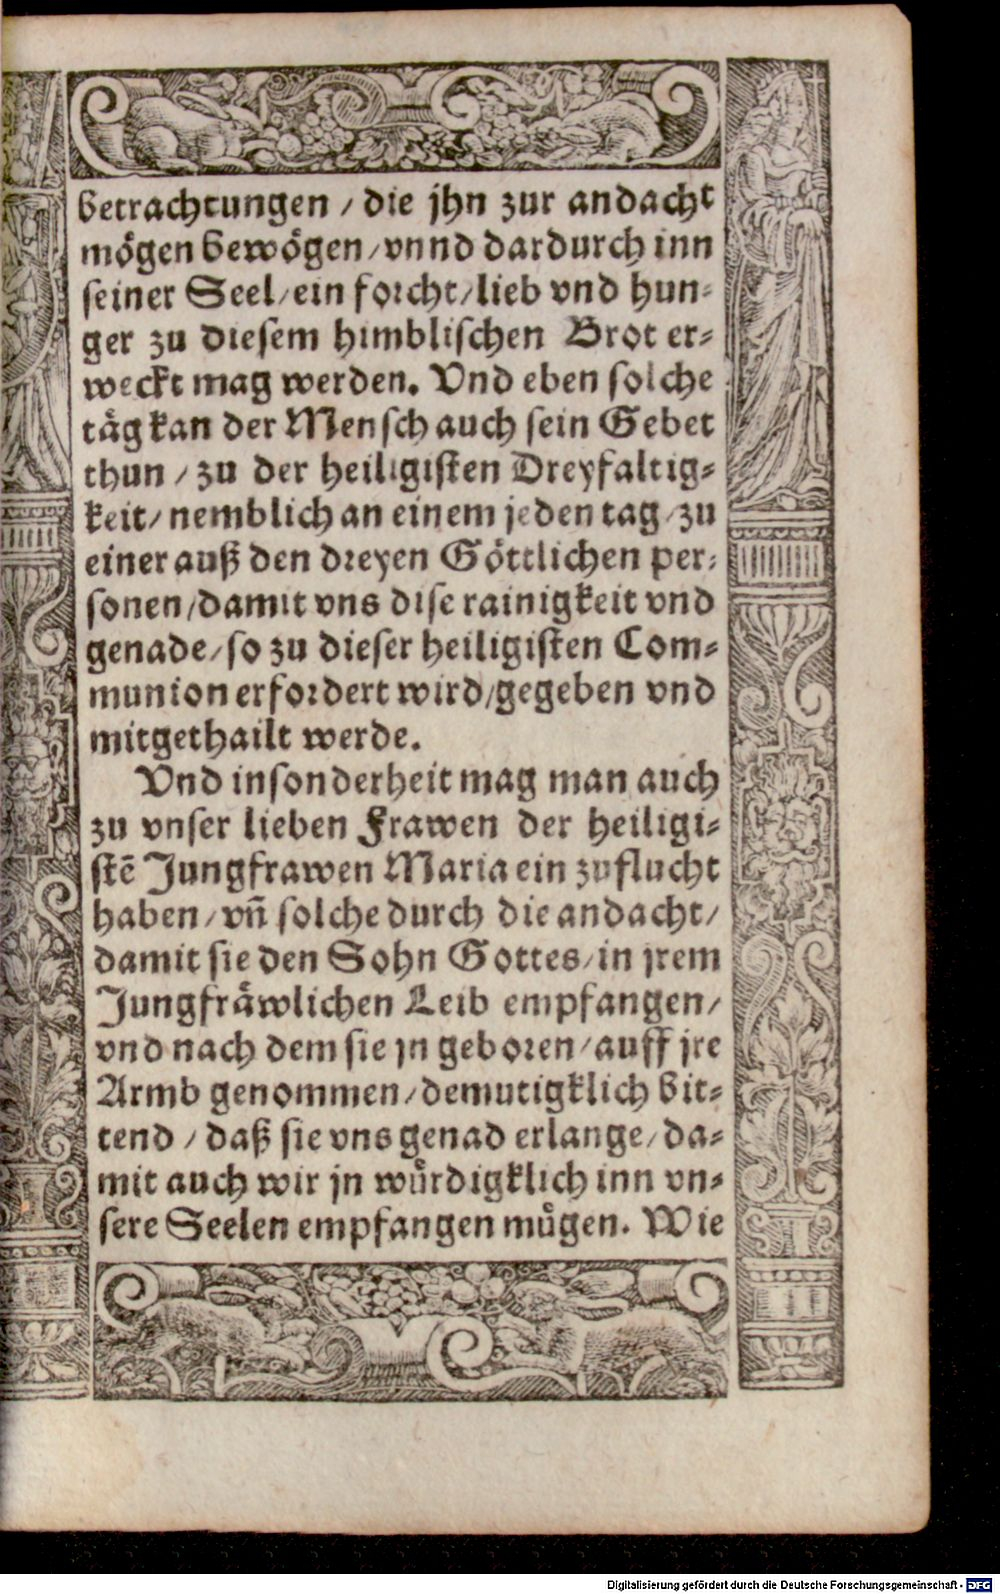 betrachtungen / die jhn zur andacht
mögen bewögen / vnnd dardurch inn
seiner Seel / ein forcht / lieb vnd hun-
ger zu diesem himblischen Brot er-
weckt mag werden. Vnd eben solche
täg kan der Mensch auch sein Gebet
thun / zu der heiligisten Dreyfaltig-
keit / nemblich an einem jeden tag / zu
einer auß den dreyen Göttlichen per-
sonen / damit vns dise rainigkeit vnd
genade / so zu dieser heiligisten Com-
munion erfordert wird / gegeben vnd
mitgethailt werde.
Vnd insonderheit mag man auch
zu vnser lieben Frawen der heiligi-
stē Jungfrawen Maria ein zuflucht
haben / vñ solche durch die andacht /
damit sie den Sohn Gottes / in jrem
Jungfräwlichen Leib empfangen /
vnd nach dem sie jn geboren / auff jre
Armb genommen / demutigklich bit-
tend / daß sie vns genad erlange / da-
mit auch wir jn würdigklich inn vn-
sere Seelen empfangen mügen. Wie
Digitalisierung gefördert durch die Deutsche Forschungsgemeinschaft - DFG